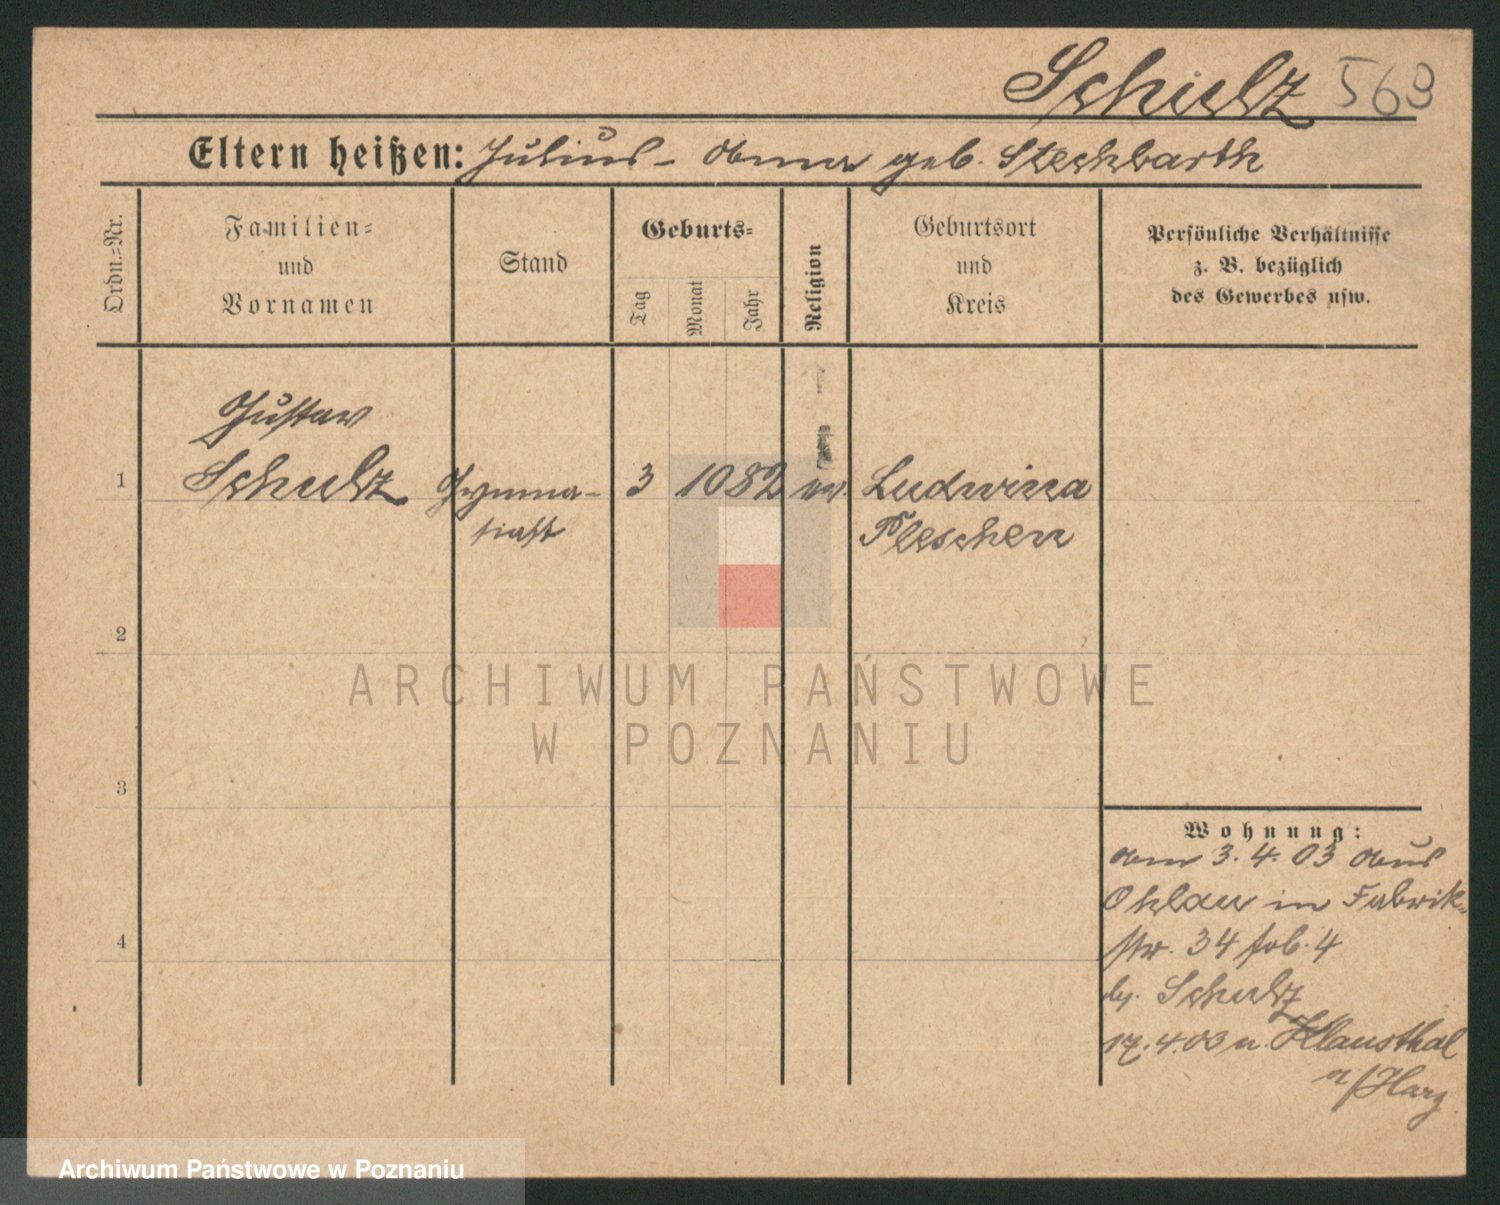 Schulz 569
Eltern heißen: Julius - Anna geb. Steckbarth
Ordn.=Nr.
Familien=
und
Vornamen
Stand
Geburts=
Tag
Monat
Jahr
Religion
Geburtsort
und
Kreis
Persönliche Verhältnisse
z. B. bezüglich
des Gewerbes usw.
Gustav
1 Schulz Gymna- 3 10 82 ev. Ludwina
siast Pleschen
2
ARCHIWUM PAŃSTWOWE
W POZNANIU
3
Wohnung:
3.4.03 aus
Ohlau in Fabrik-
4
str. 34
Schulz
17.4.03 n. Klausthal
a/Harz
Archiwum Państwowe w Poznaniu